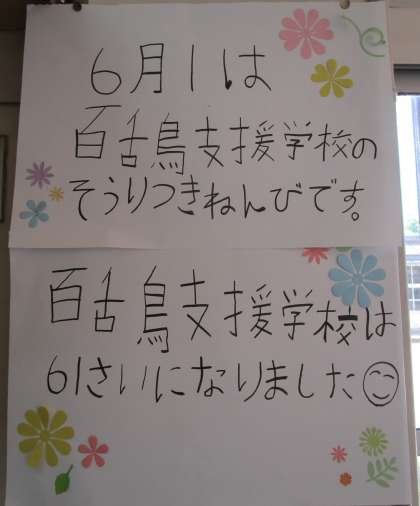 6月1は
百舌鳥支援学校の
そうりつきねんびです。
百舌鳥支援学校は
61さいになりました